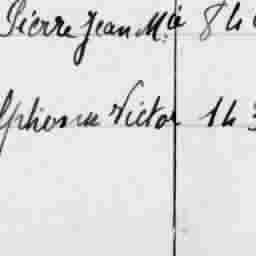 Pierre Jean M.ie 84
lphonse Victor 143